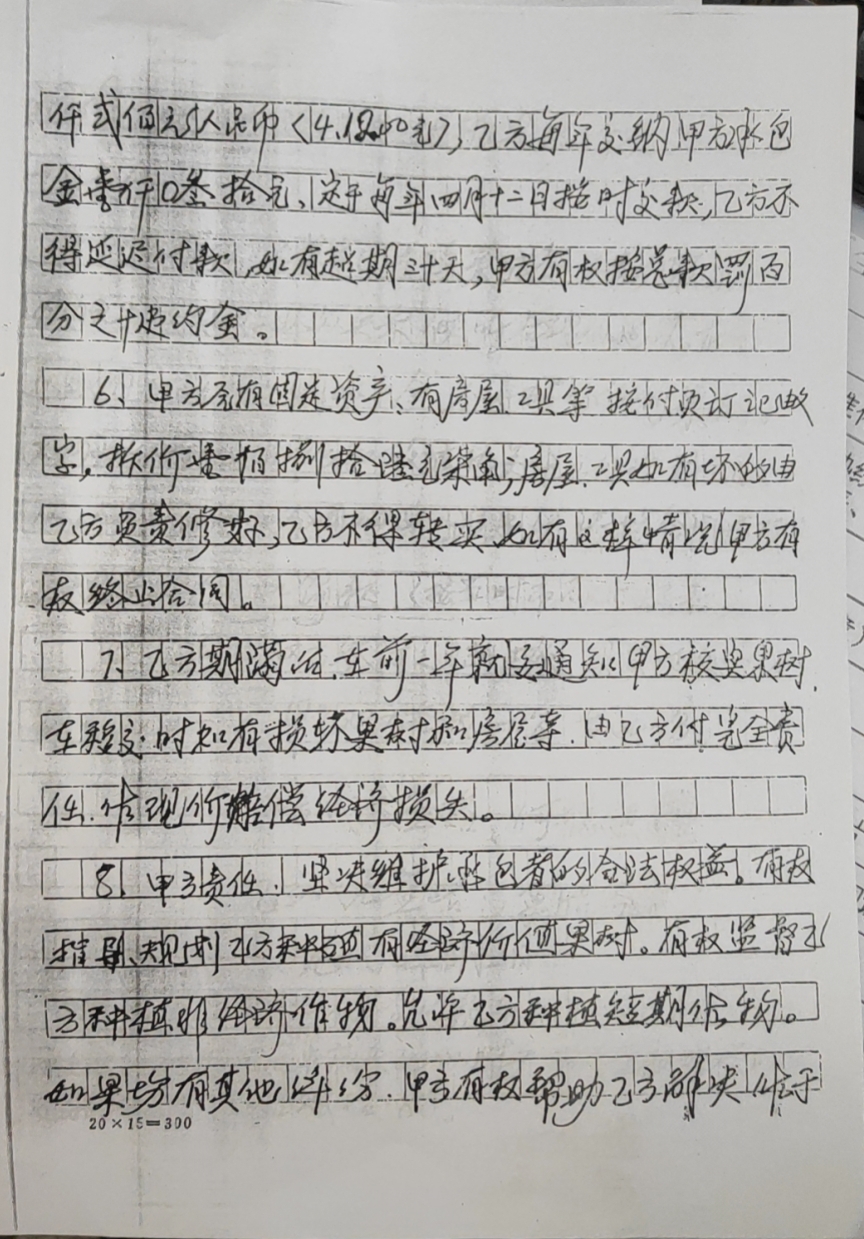 仟贰佰元人民币(4.1200元),乙方每年交纳甲方承包
金壹仟0叁拾元、定于每年四月十二日按时交款,乙方不
得延迟付款,如有超期三十天,甲方有权按总款罚百
分之十违约金。
6、甲方原有固定资产、有房屋、工具等 按付页订记
字,拆价壹佰捌拾 元柒角;房屋、工具如有坏的由
乙方负责修好,乙方不得转买、如有这样情况甲方有
权终止合同。
7、乙方期满时、在前一年就要通知甲方核实果树,
在移交时如有损坏果树和房屋等、由乙方付完全责
任、作现价赔偿经济损失。
8、甲方责任、坚决维护承包者的合法权益。有权
指导、规划乙方种植有经济价值果树。有权监督乙
方种植非经济作物。允许乙方种植短期作物。
如果场有其他纠纷、甲方有权帮助乙方解决 于
20×15=300